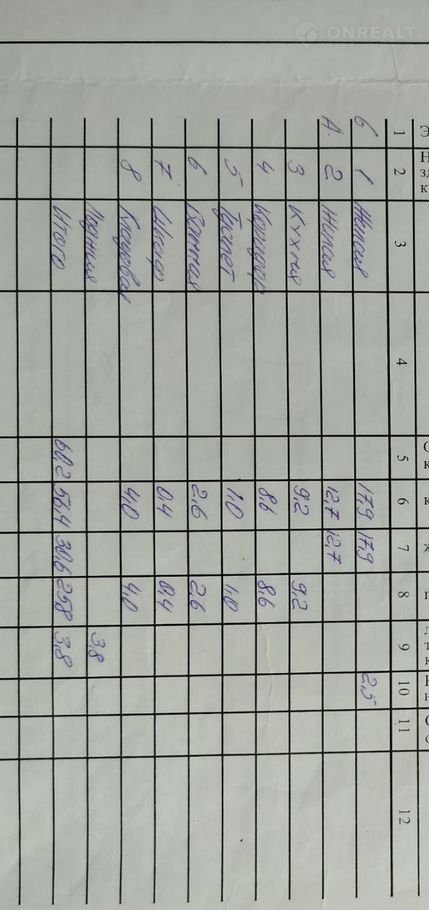 ONREALT
1 2 3 4 5 6 7 8 9 10 11 12
6 1 Жилая 17,9 17,9 2,5
А 2 Жилая 12,7 12,7
3 Кухня 9,2 9,2
4 Коридор 8,6 8,6
5 Туалет 1,0 1,0
6 Ванная 2,6 2,6
7 Шкаф 0,4 0,4
8 Кладовая 4,0 4,0
Лоджия 3,8
Итого 60,2 56,4 30,6 25,8 3,8